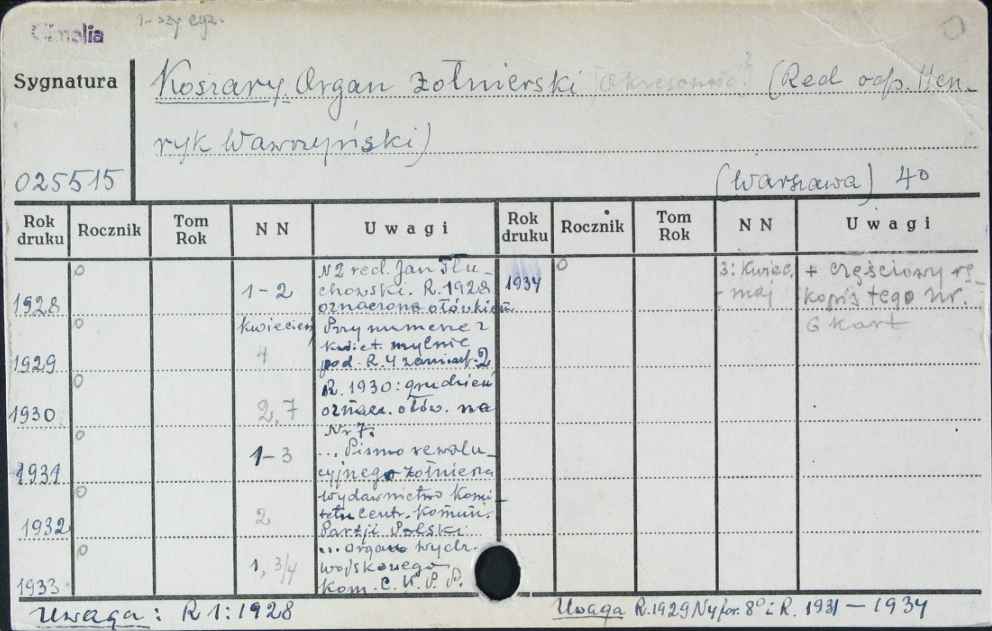 Cimelia
1-szy egz.
Sygnatura
Koszary. Organ żołnierski (Red. odp. Hen-
ryk Wawrzyński)
025515
(Warszawa) 4°
Rok druku Rocznik Tom Rok NN Uwagi Rok druku Rocznik Tom Rok NN Uwagi
1928 0 1-2
N2 red. Jan Tłu-
chowski. R. 1928
oznaczona ołówkiem
1929 0 kwiecień 4
Przy numerze z
kwiet. mylnie
pod. R. 4 zamiast 2
1930 0 2, 7
R. 1930: grudzień
oznacz. ołów. na
Nr 7.
1931 0 1-3
... Pismo rewolu-
cyjnego żołnierza
1932 0 2
wydawnictwo Komi-
tetu centr. Komun.
Partji Polski
1933 0 1, 3/4
... organ wydz.
wojskowego
Kom. C. K. P. P.
1934 0 3: Kwiec.
- maj
+ częściowy rę-
kopis tego nr.
6 kart
Uwaga: R 1: 1928
Uwaga R. 1929 N4 for. 8° i R. 1931-1934